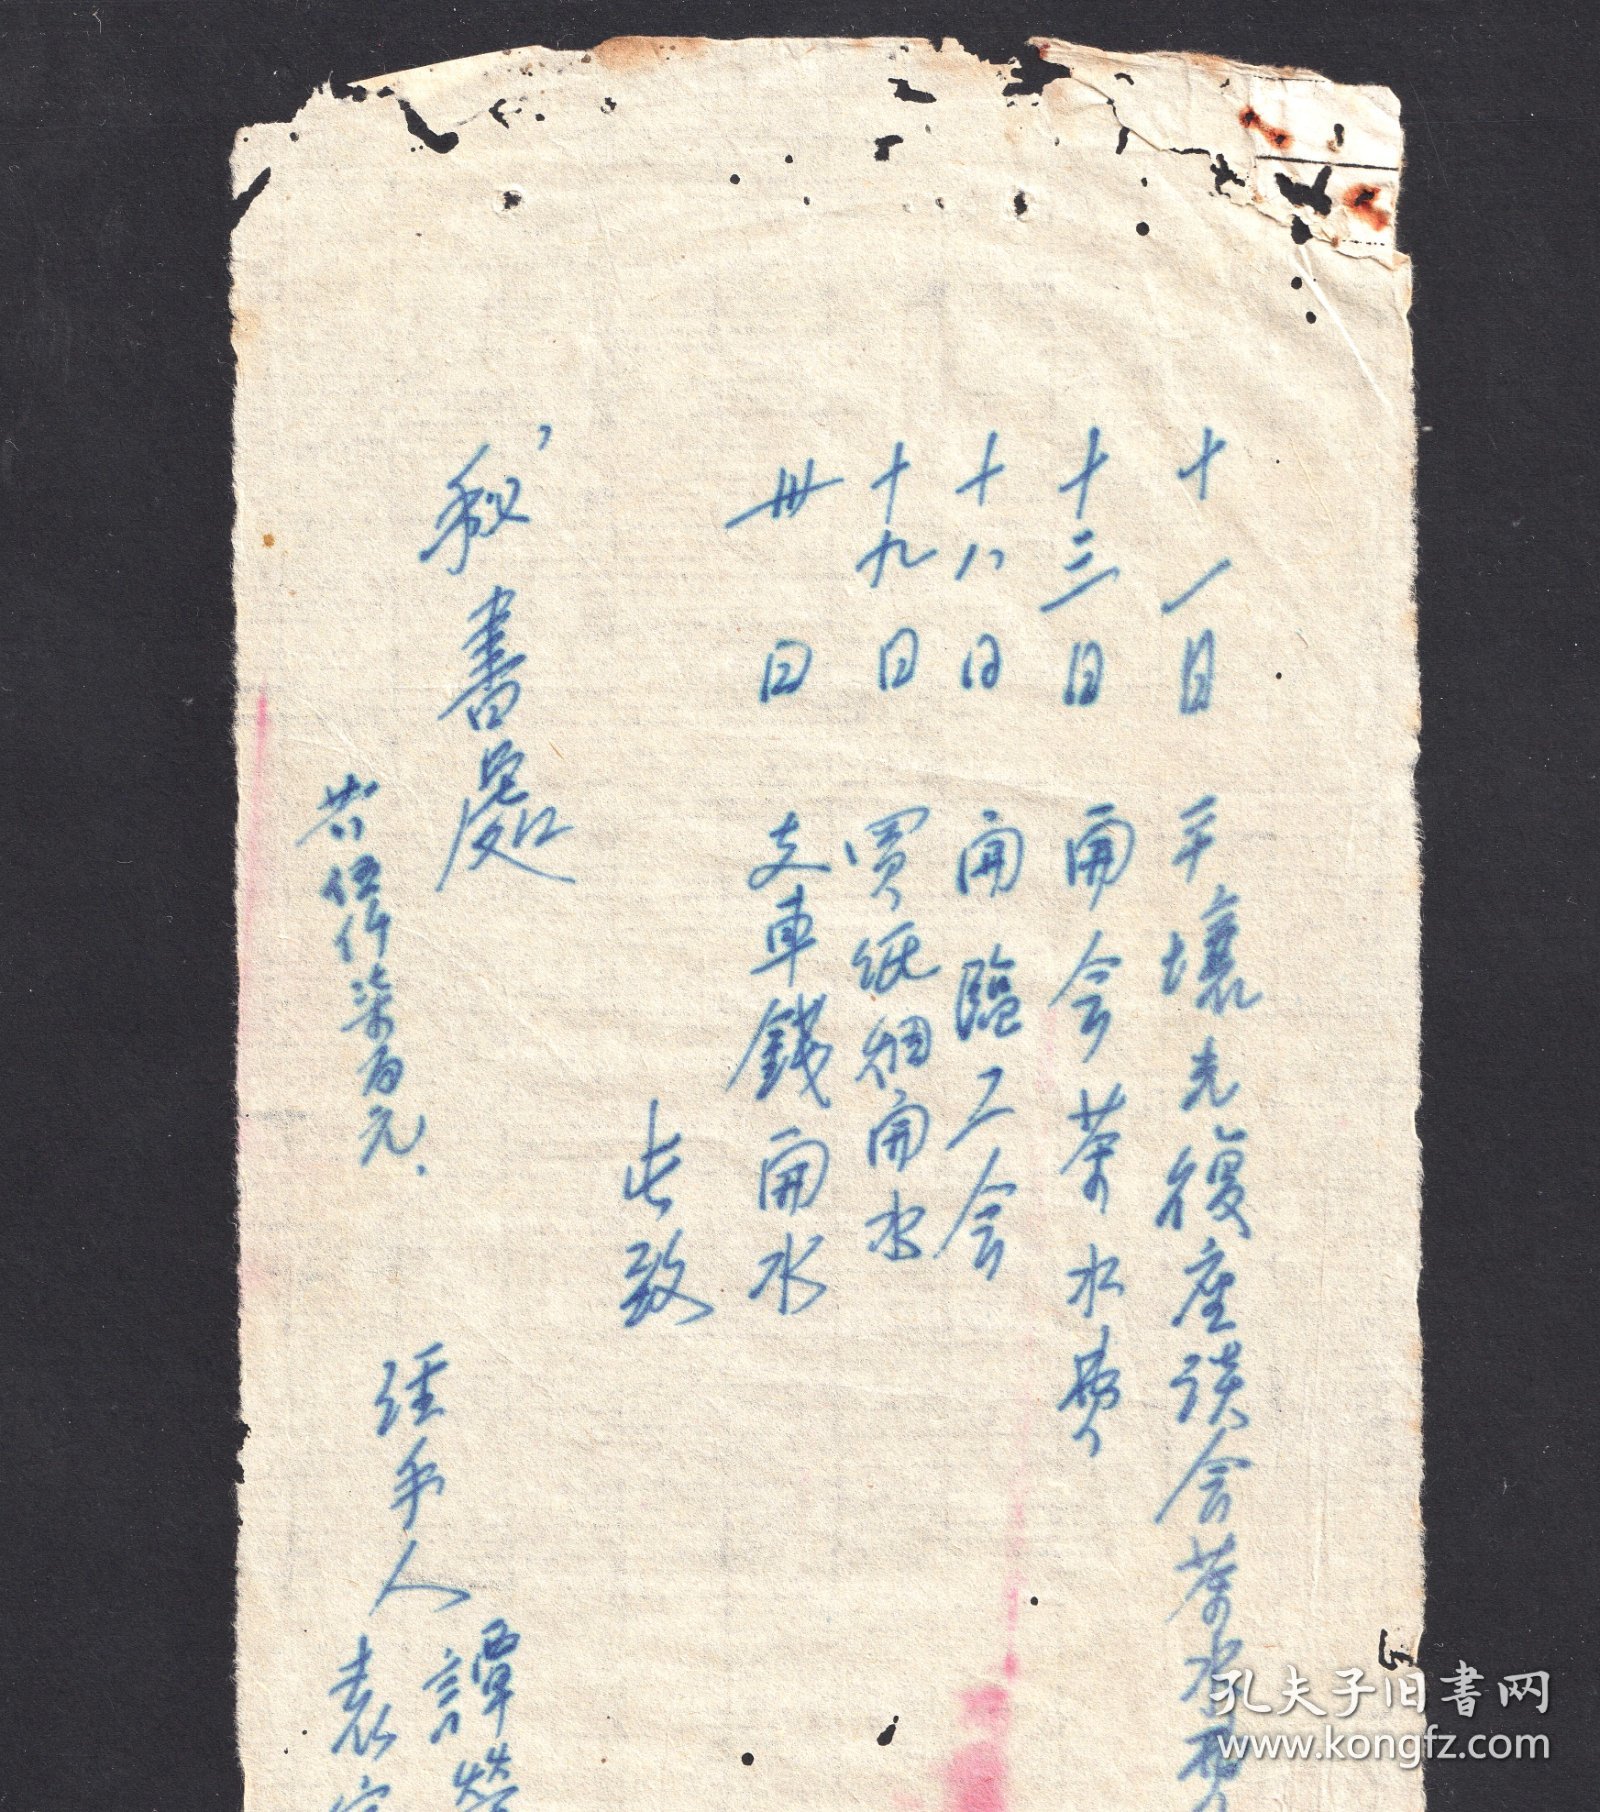 十一日 平壤光復座談会茶水
十三日 開会茶水費
十八日 開臨工会
十九日 買纸烟開水
卅日 支車錢開水
此致
秘書處
共伍仟柒百元、
经手人 譚
袁
孔夫子旧书网
www.kongfz.com